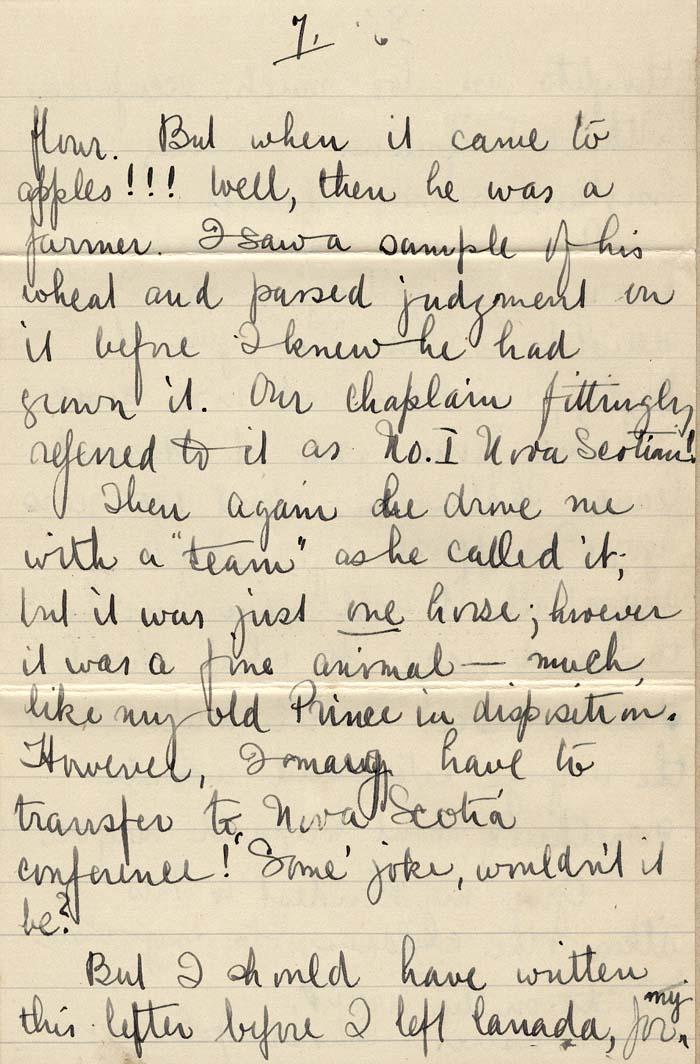 7.
flour. But when it came to
apples!!! Well, then he was a
farmer. I saw a sample of his
wheat and passed judgment on
it before I knew he had
grown it. Our chaplain fittingly
referred to it as No. I Nova Scotian!
Then again he drove me
with a "team" as he called it;
but it was just one horse; however
it was a fine animal — much
like my old Prince in disposition.
However, I may have to
transfer to Nova Scotia
conference! 'Some' joke, wouldn't it
be?
But I should have written
this letter before I left Canada, for my